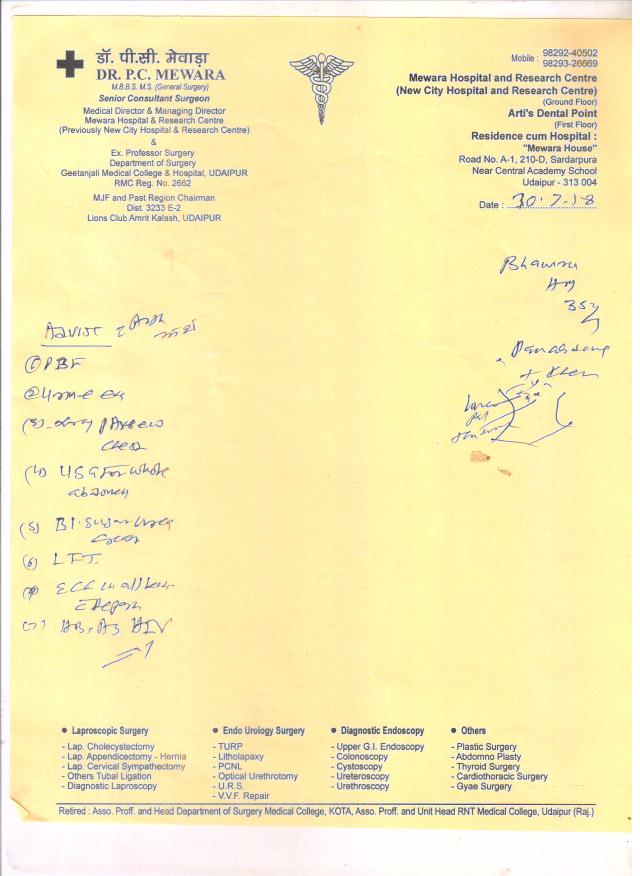 डॉ. पी.सी. मेवाड़ा
DR. P.C. MEWARA
M.B.B.S. M.S. (General Surgery)
Senior Consultant Surgeon
Medical Director & Managing Director
Mewara Hospital & Research Centre
(Previously New City Hospital & Research Centre)
&
Ex. Professor Surgery
Department of Surgery
Geetanjali Medical College & Hospital, UDAIPUR
RMC Reg. No. 2662
MJF and Past Region Chairman
Dist. 3233 E-2
Lions Club Amrit Kalash, UDAIPUR
Mobile : 98292-40502
98293-26669
Mewara Hospital and Research Centre
(New City Hospital and Research Centre)
(Ground Floor)
Arti's Dental Point
(First Floor)
Residence cum Hospital :
"Mewara House"
Road No. A-1, 210-D, Sardarpura
Near Central Academy School
Udaipur - 313 004
Date : 30.7.18
35y
(1) PBF
(2)
(3)
Chest
(4) USG For whole
abdomen
(5) Bl. Sugar Urea
(6) LFT.
HIV
Laproscopic Surgery
- Lap. Cholecystectomy
- Lap. Appendicectomy - Hernia
- Lap. Cervical Sympathectomy
- Others Tubal Ligation
- Diagnostic Laproscopy
Endo Urology Surgery
- TURP
- Litholapaxy
- PCNL
- Optical Urethrotomy
- U.R.S.
- V.V.F. Repair
Diagnostic Endoscopy
- Upper G.I. Endoscopy
- Colonoscopy
- Cystoscopy
- Ureteroscopy
- Urethroscopy
Others
- Plastic Surgery
- Abdomno Plasty
- Thyroid Surgery
- Cardiothoracic Surgery
- Gyae Surgery
Retired : Asso. Proff. and Head Department of Surgery Medical College, KOTA, Asso. Proff. and Unit Head RNT Medical College, Udaipur (Raj.)